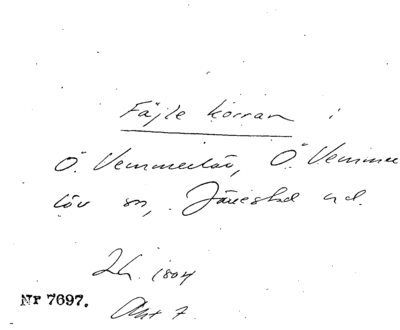 Fäjle korran i
Ö. Vemmerlöv, Ö. Vemmer
löv sn, Järrestad hd.
Lh. 1804
Akt 7
Nr 7697.